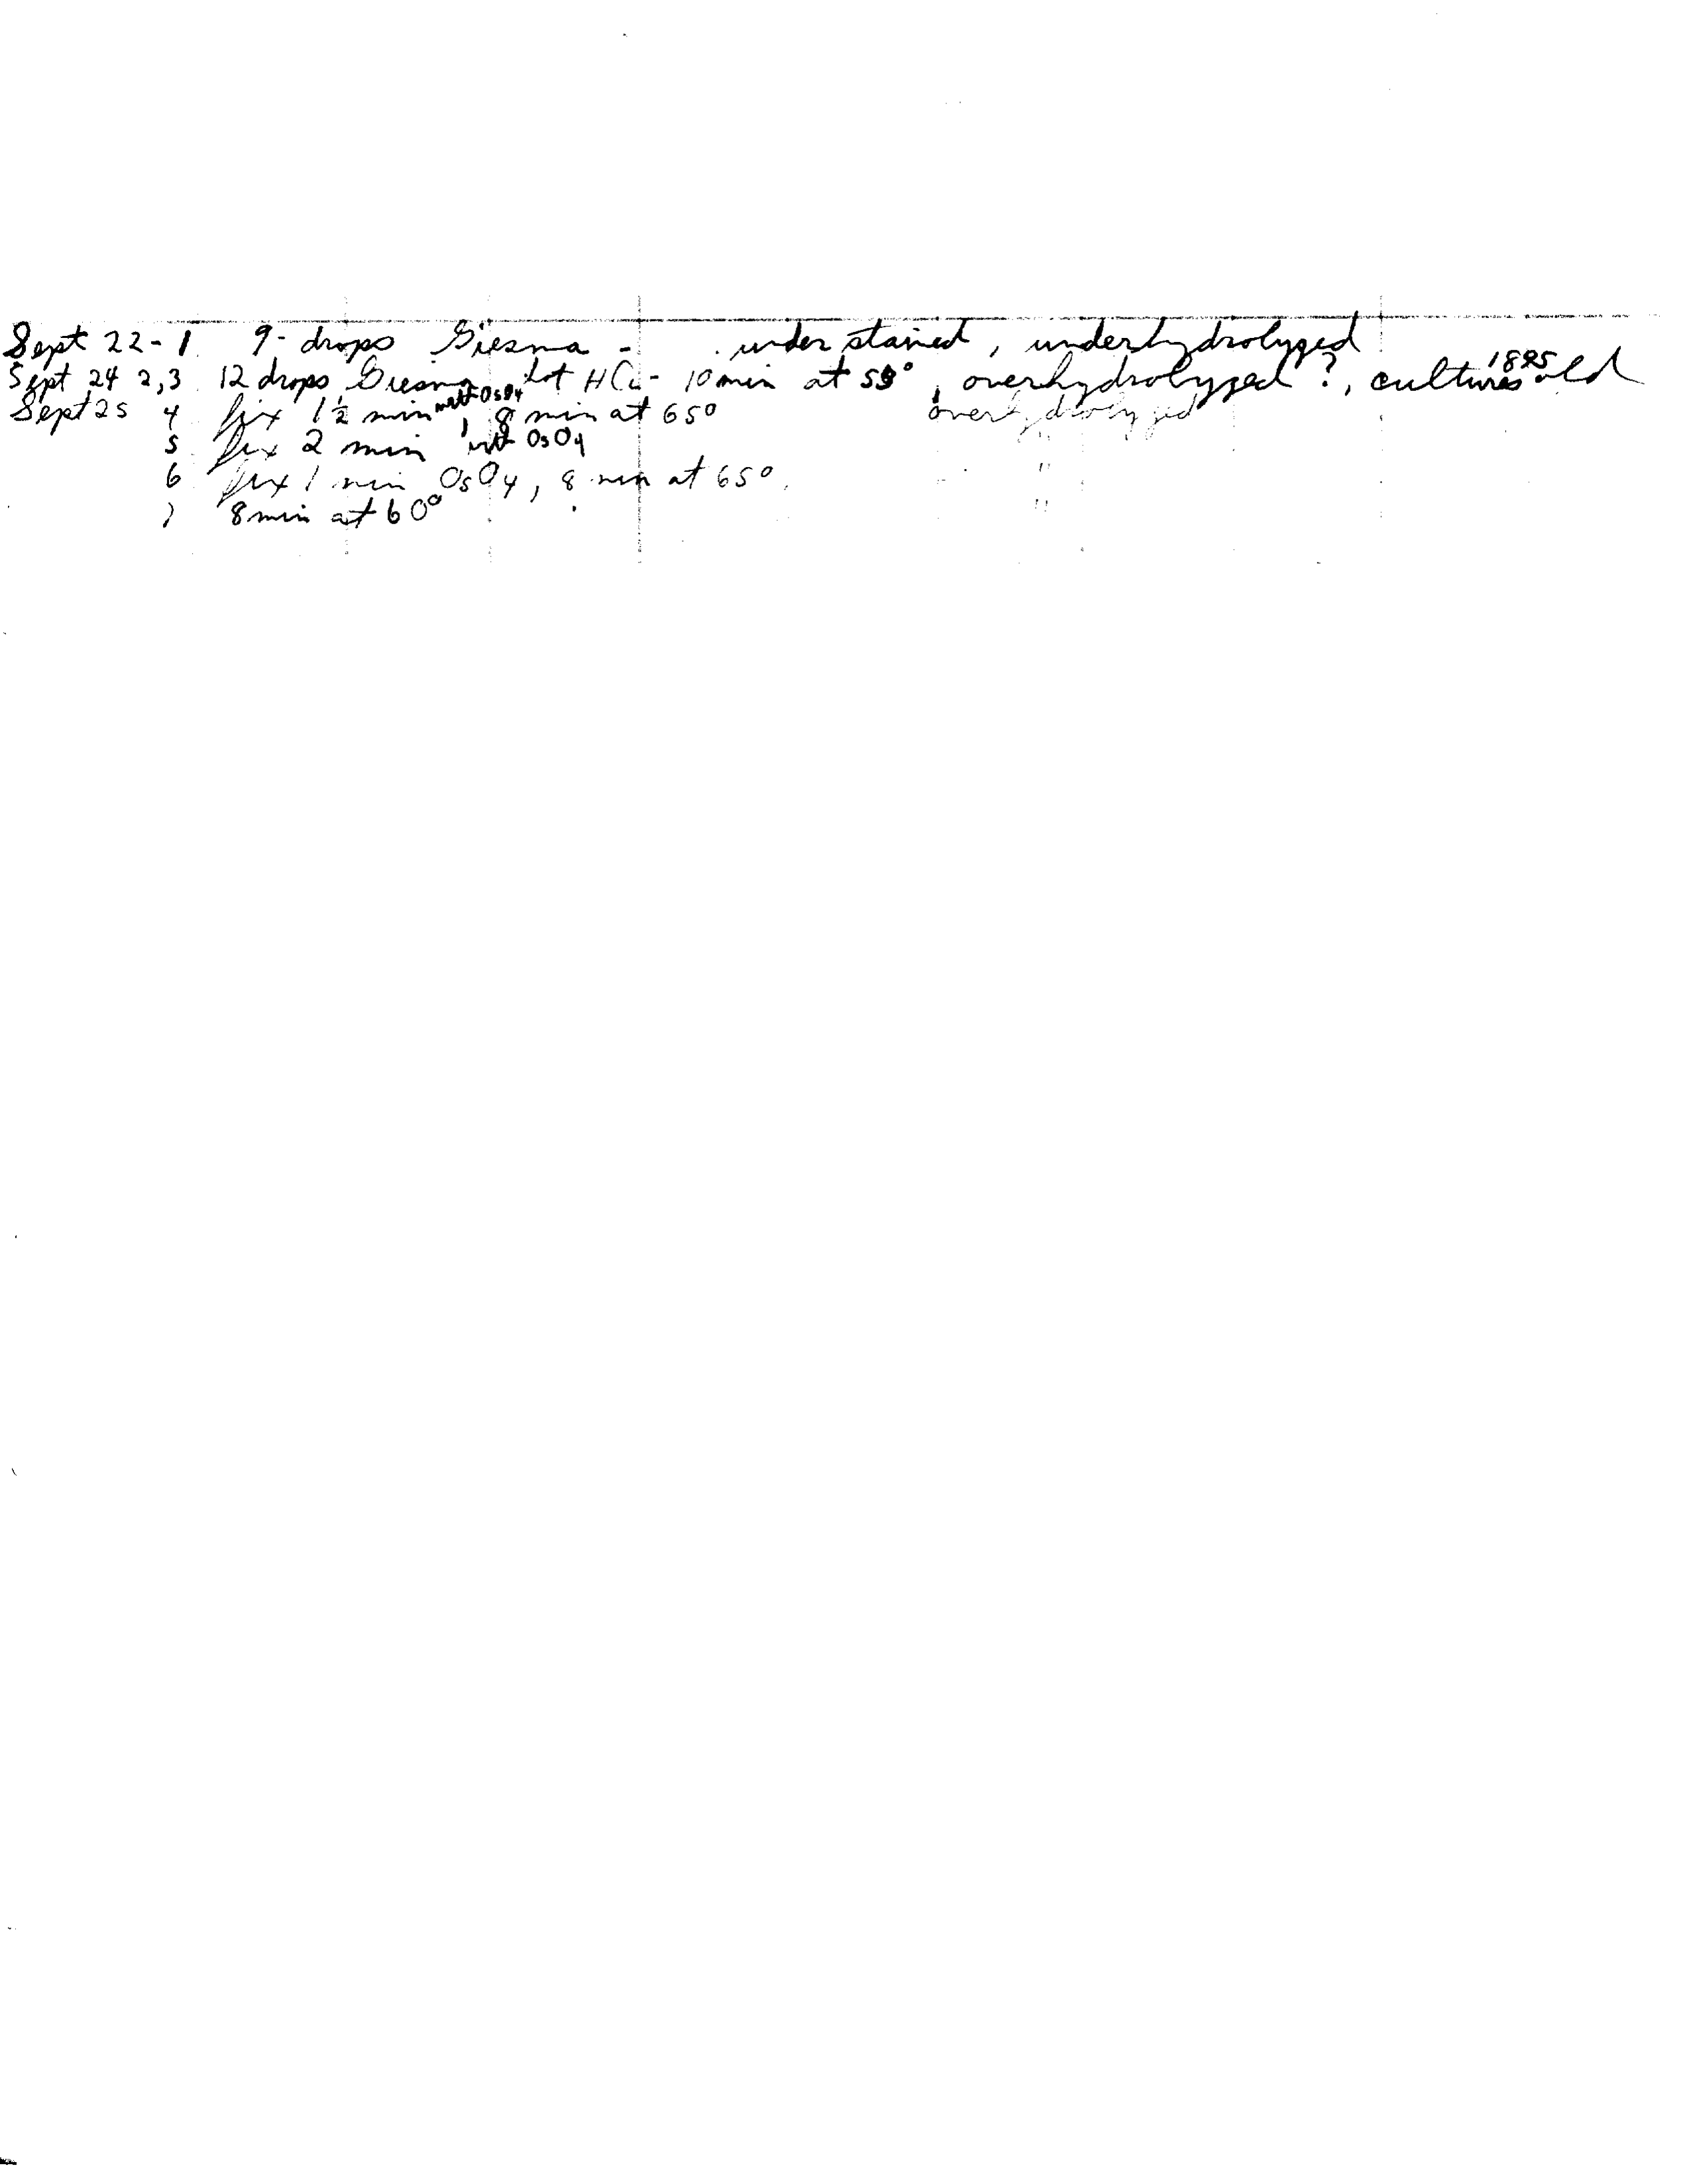 Sept 22 - 1 9 - drops Giesma - under stained, underhydrolyzed
Sept 24 2,3 12 drops Giesma hot HCl - 10 min at 58°, overhydrolyzed ?, cultures old
Sept 25 4 fix 1½ min with OsO4, 8 min at 65° overhydrolyzed
5 fix 2 min with OsO4
6 fix 1 min OsO4, 8 min at 65° "
7 8 min at 60° "